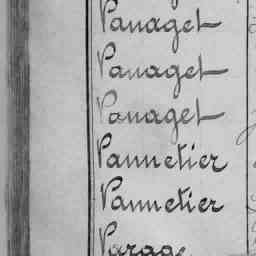 Panaget
Panaget
Panaget
Pannetier
Pannetier
Parage